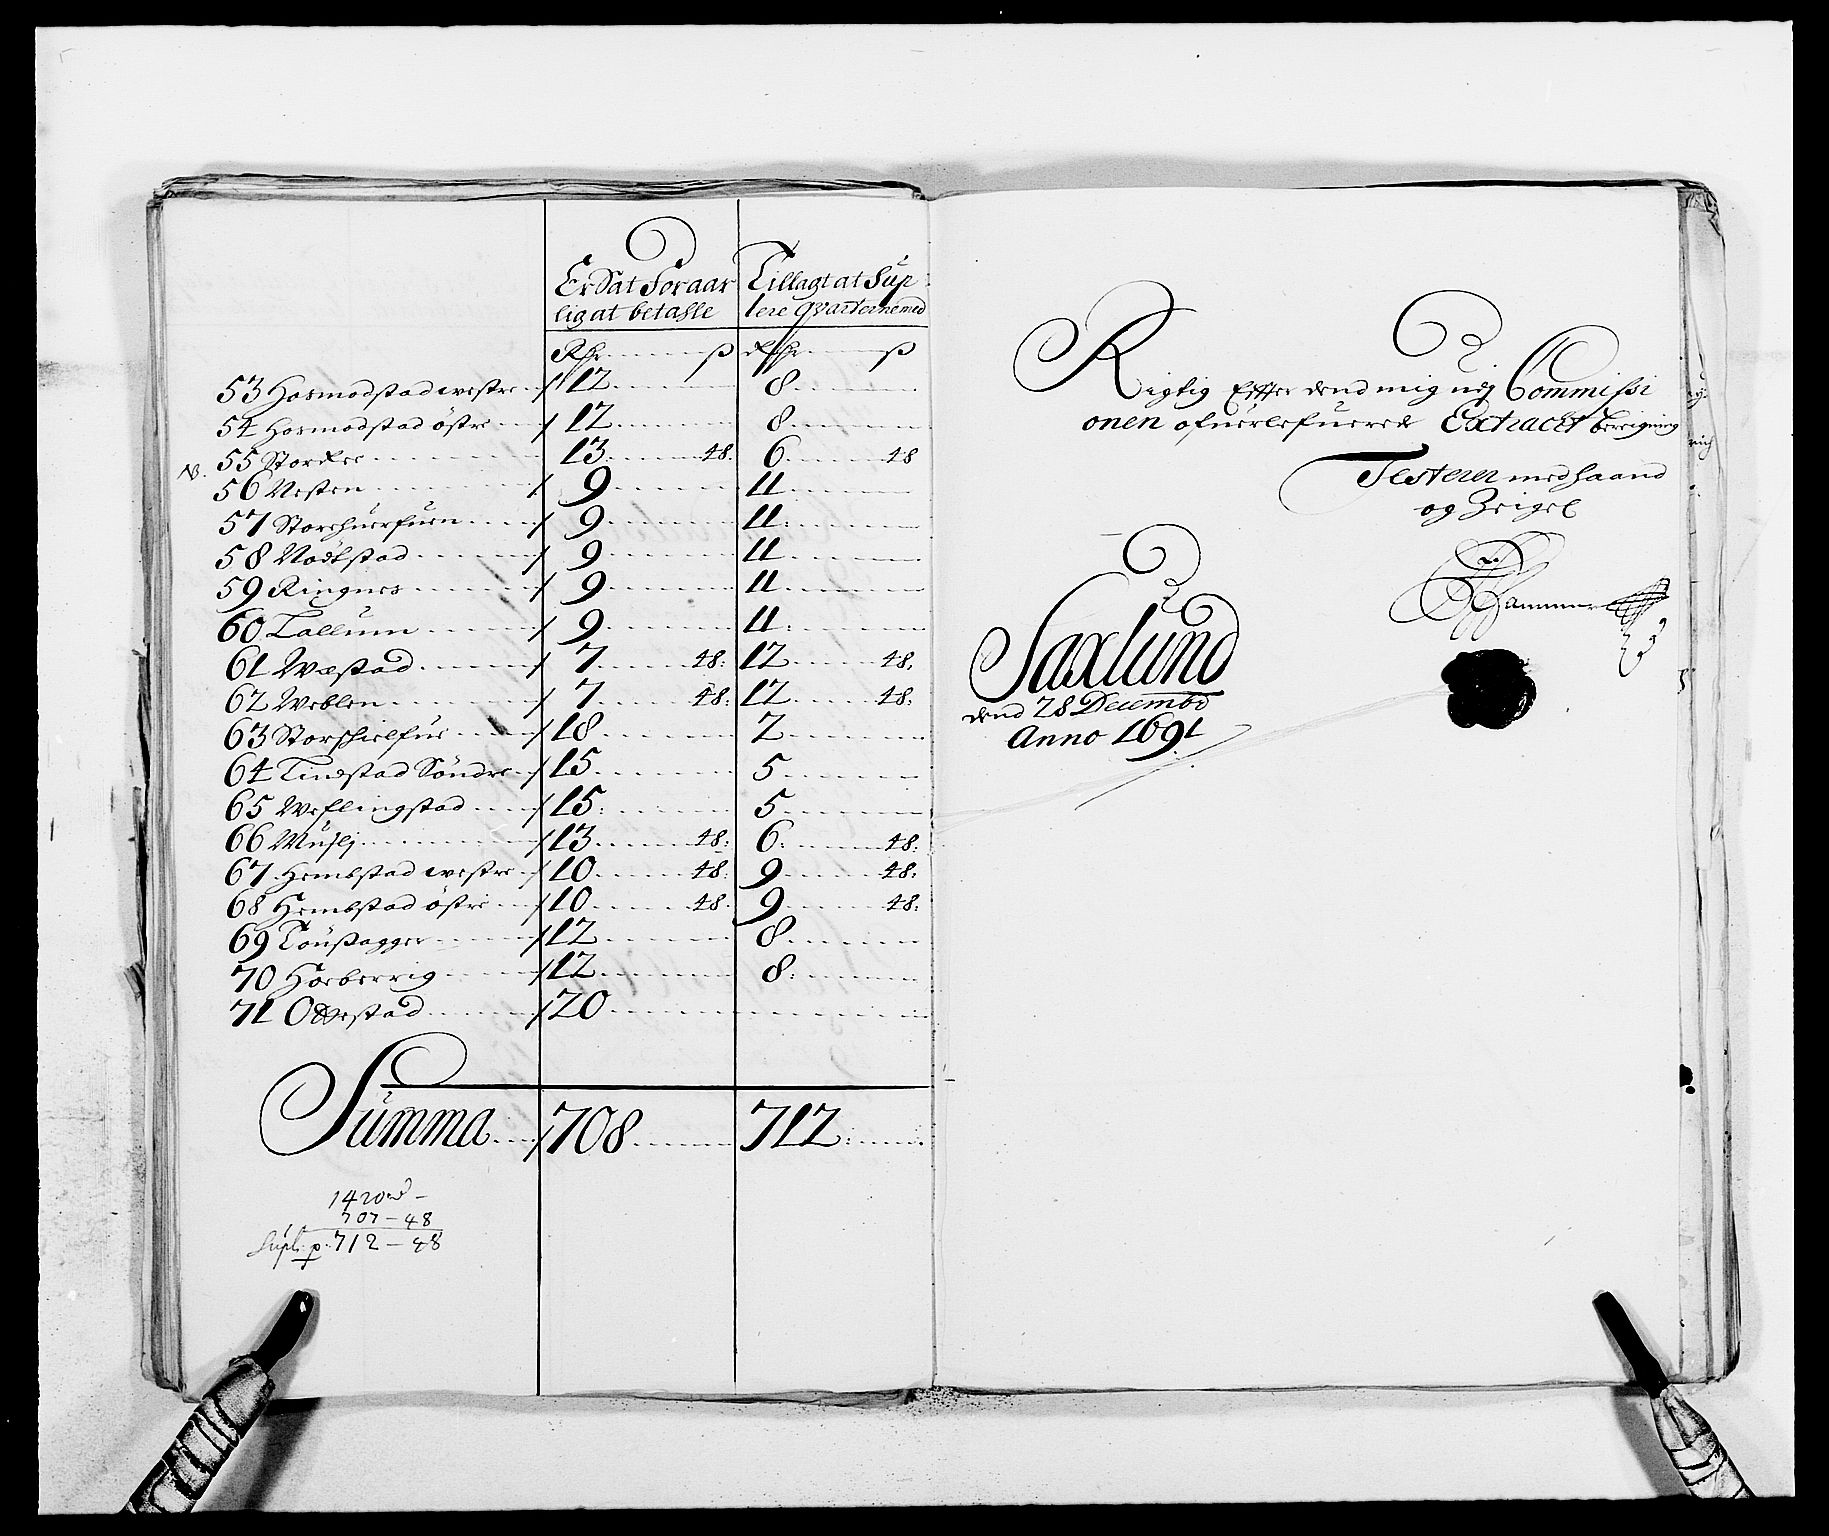 Er Sat for aar Tillagt at Sup
lig at betalle lere qvarterne med
Rdr ß Rdr ß
53 Hosmodstad westre 12 8
54 Hosmodstad östre 12 8
NB. 55 Stordee 13 48. 6 48
56 Nesten 9 11
57 Storehuerfuen 9 11
58 Nodlstad 9 11
59 Ringnes 9 11
60 Tollum 9 11
61 Wæstad 7 48: 12 48.
62 Weblen 7 48: 12 48:
63 Storschielfue 18 2
64 Tindstad Söndre 15 5
65 Weflingstad 15 5
66 Musli 13 48: 6 48:
67 Hembstad westre 10 48: 9 48.
68 Hembstad östre 10 48. 9 48:
69 Toußagger 12 8
70 Horberrig 12 8
71 Oddestad 20
Summa 708 712
1420
707 – 48
Supl. p. 712 – 48
Rigtig Effter dend mig udj Commissi
onen ofuerlefuerede Extract bereigning
Testerer med haand
og Zeigel
Hammer
Saxlund
dend 28 Decembr
Anno 1691